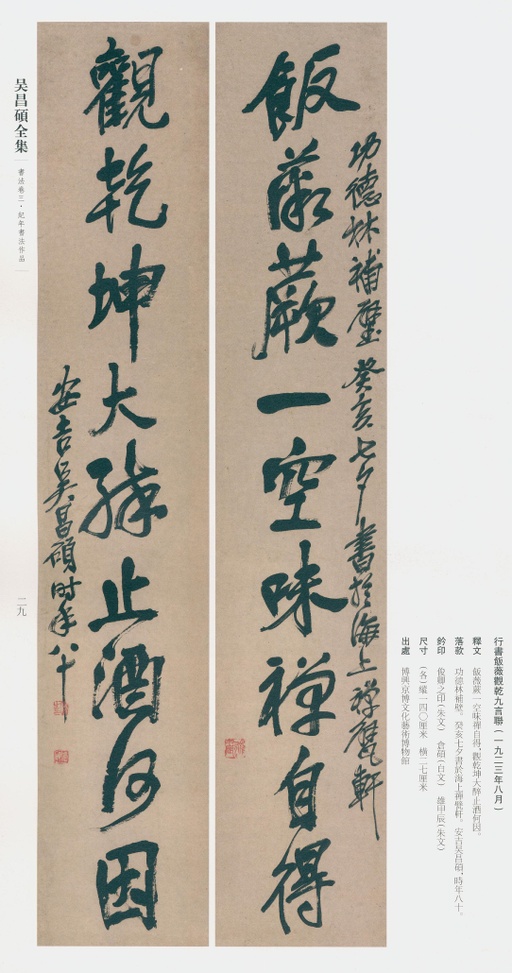 飯薇蕨一空味禅自得
功德林補壁癸亥七夕書於海上禅甓軒
觀乾坤大醉止酒何因
安吉吴昌碩時年八十
行書飯薇觀乾九言聯（一九二三年八月）
釋文　飯薇蕨一空味禅自得，觀乾坤大醉止酒何因。
落款　功德林補壁。癸亥七夕書於海上禅甓軒。安吉吴昌碩，時年八十。
鈐印　俊卿之印（朱文）　倉碩（白文）　雄甲辰（朱文）
尺寸　（各）縱一四〇厘米　橫二七厘米
出處　博興京博文化藝術博物館
吴昌碩全集
書法卷三·紀年書法作品
二九